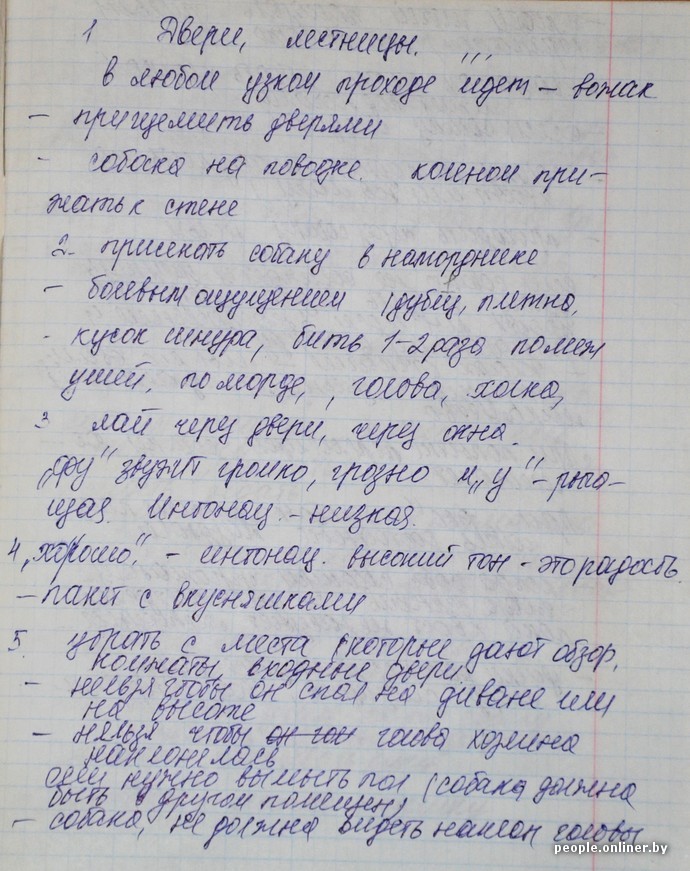 1 Двери, лестницы.
в любом узком проходе идет – вожак
– прищемить дверями
- собака на поводке. коленом при-
жать к стене
2. приискать собаку в наморднике
– болевым ощущением (дубец, плетка,
- кусок шнура, бить 1-2 раза помеж
ушей, по морде, , голова, холка,
3 лай через двери, через окна.
„фу" звучит громко, грозно и „у" – рыча-
щая. Интонац. – низкая.
4 „хорошо". – интонац. высокий тон – это радость.
– пакет с вкусняшками
5. убрать с места (которые дают обзор,
комнаты входные двери
– нельзя чтобы он спал на диване или
на высоте
– нельзя чтобы голова хозяина
наклонялась
если нужно вымыть пол (собака должна
быть в другом помещен)
– собака, не должна видеть наклон головы
people.onliner.by